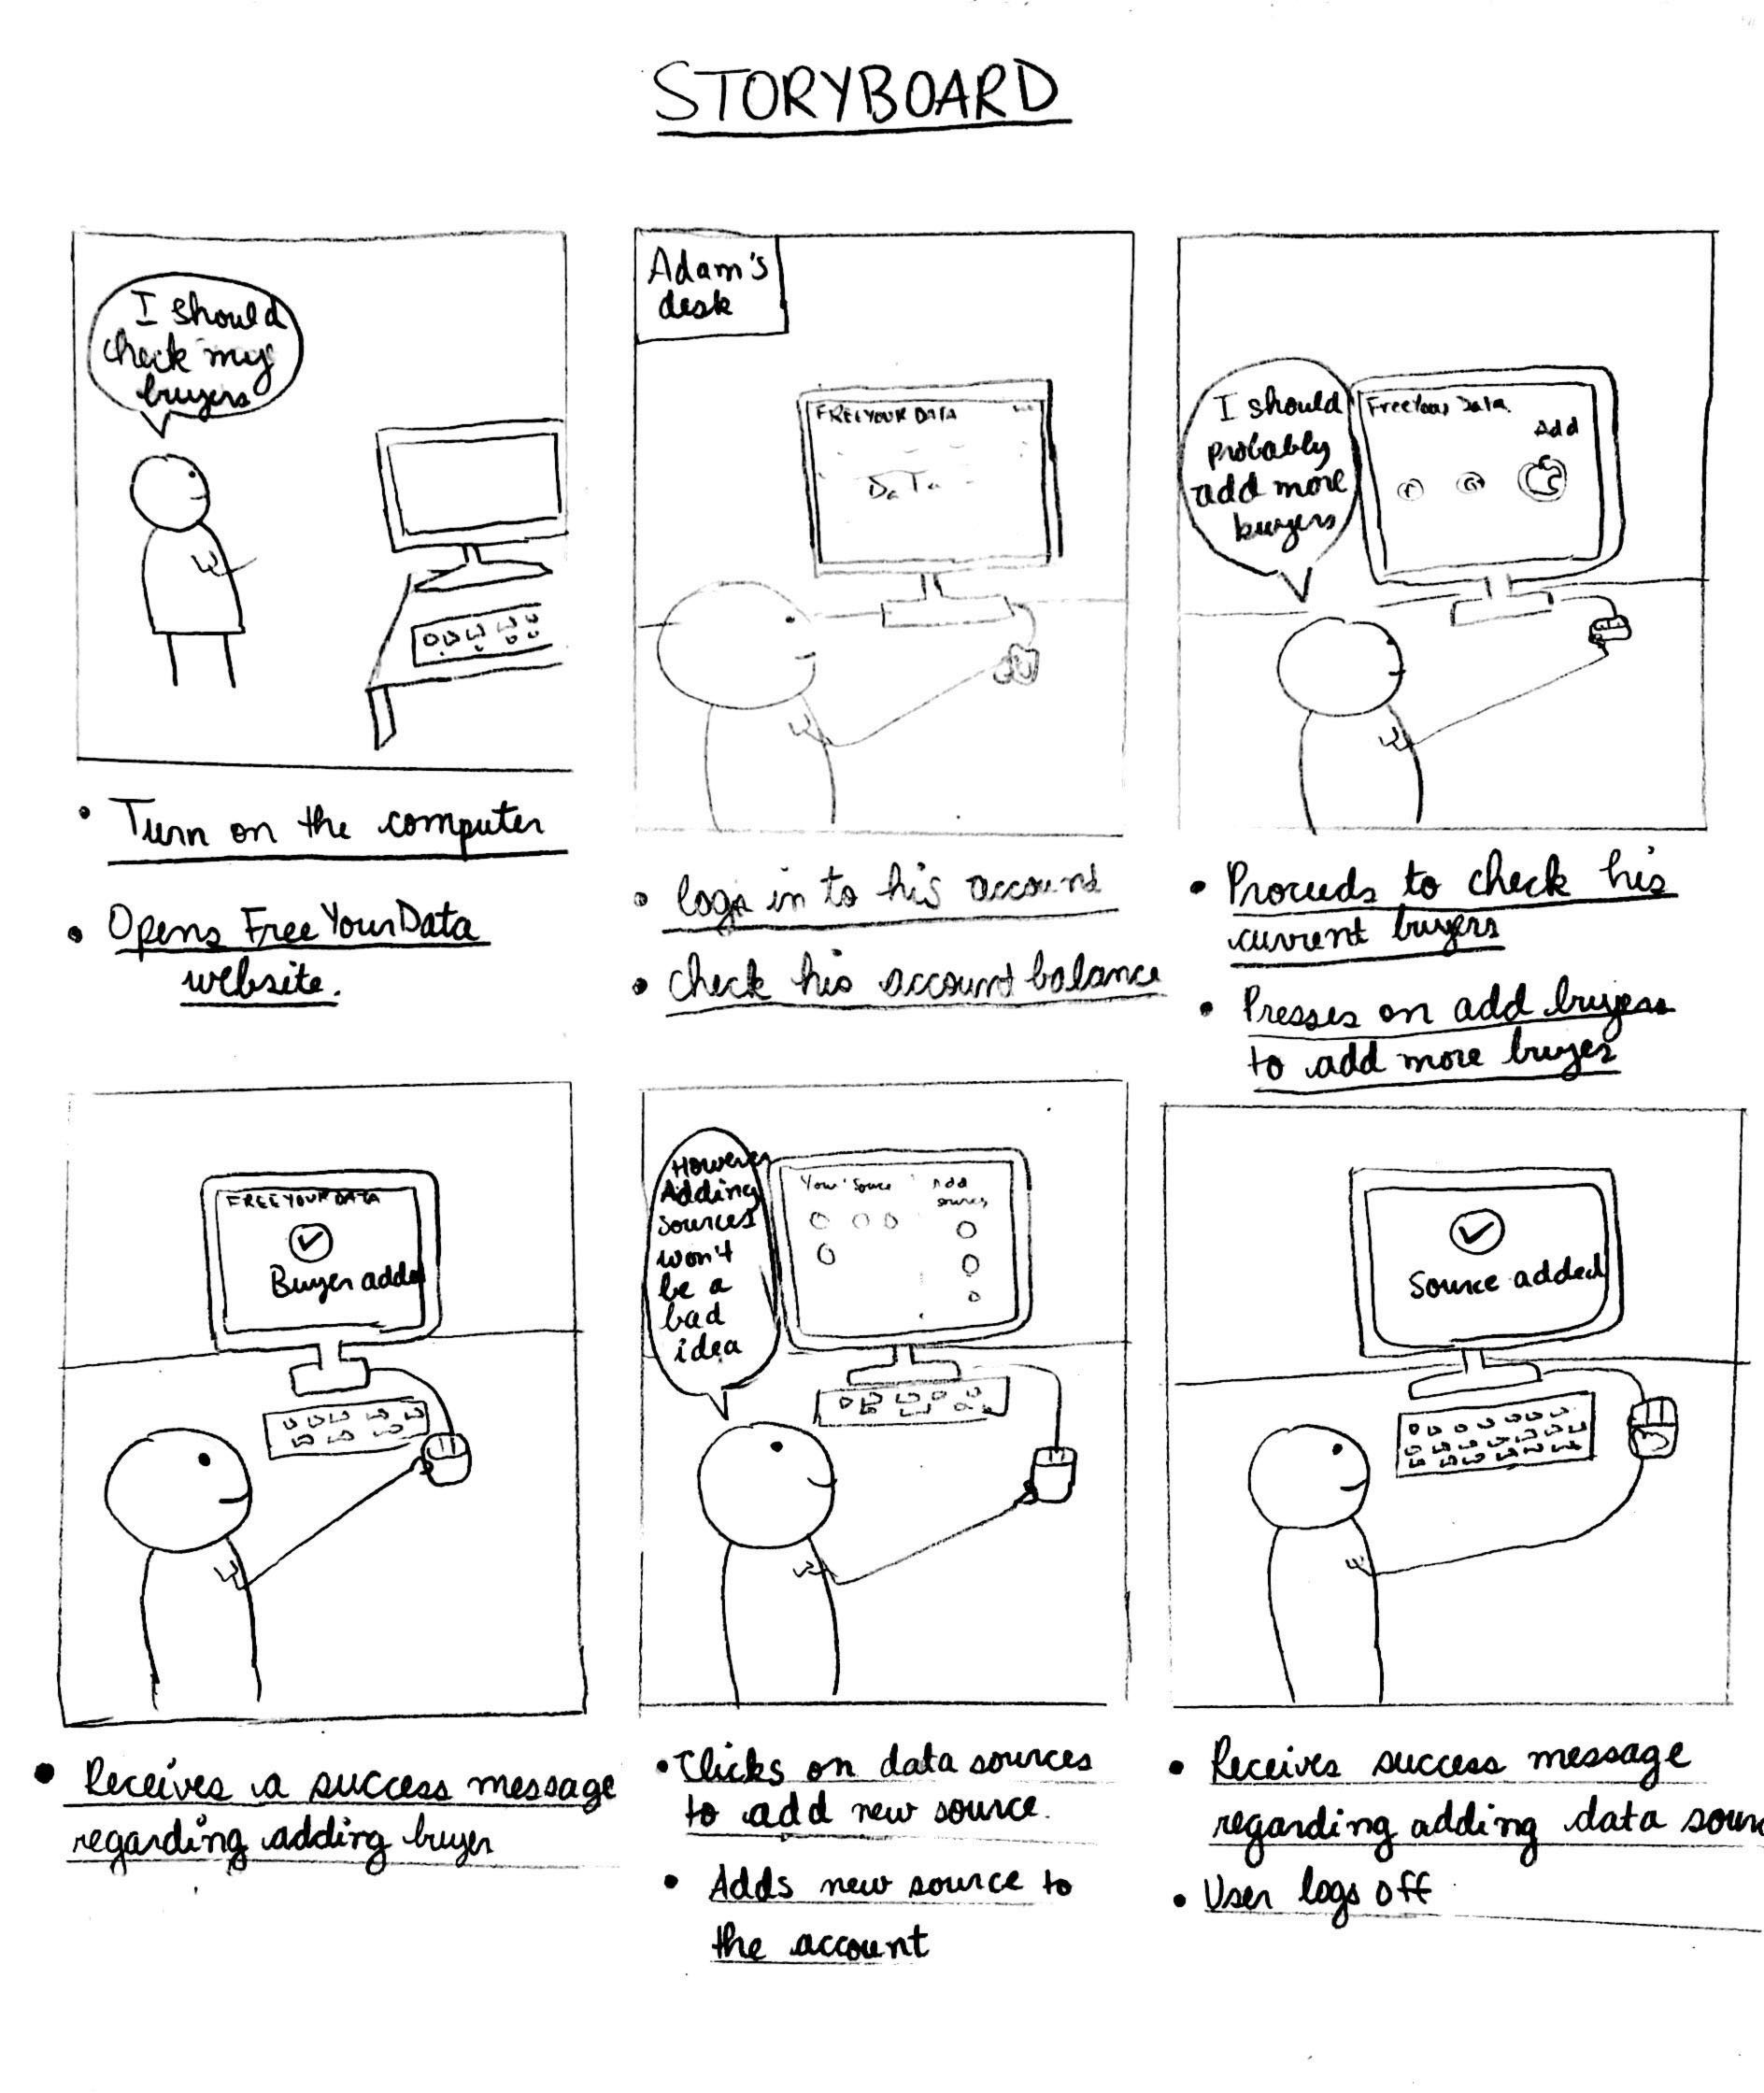 STORYBOARD
I should
check my
buyers
• Turn on the computer
• Opens FreeYourData
website.
Adam's
desk
FREEYOUR DATA
DaTa
• logs in to his account
• check his account balance
I should
probably
add more
buyers
FreeYour Data
Add
• Proceeds to check his
current buyers
• Presses on add buyers
to add more buyer
FREEYOUR DATA
Buyer added
• Receives a success message
regarding adding buyer
However
Adding
sources
won't
be a
bad
idea
Your Source
Add
sources
• Clicks on data sources
to add new source.
• Adds new source to
the account
Source added
• Receives success message
regarding adding data sourc
• User logs off